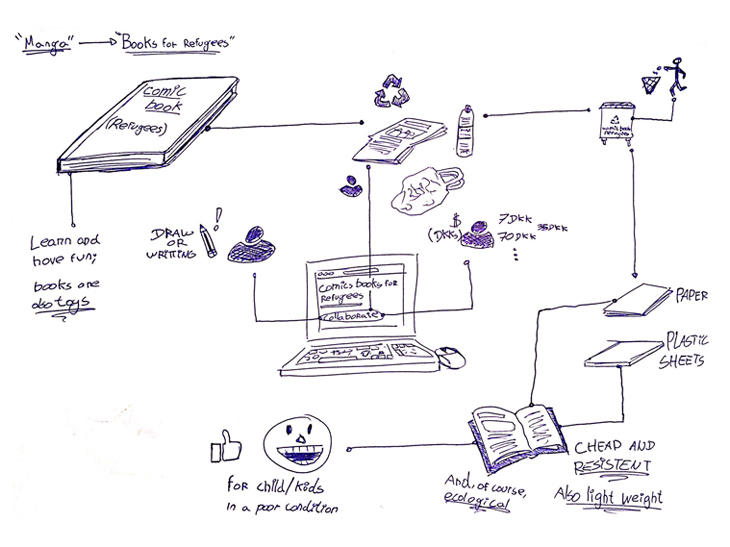 "Manga" → "Books for Refugees"
comic
book
(Refugees)
Learn and
have fun;
books are
also toys
DRAW
OR
WRITING
!
$
(DKKs)
7DKK
35DKK
70DKK
comics books for
Refugees
collaborate
comic book
refugees
PAPER
PLASTIC
SHEETS
CHEAP AND
RESISTENT
Also light weight
And, of course,
ecological
for child/kids
in a poor condition